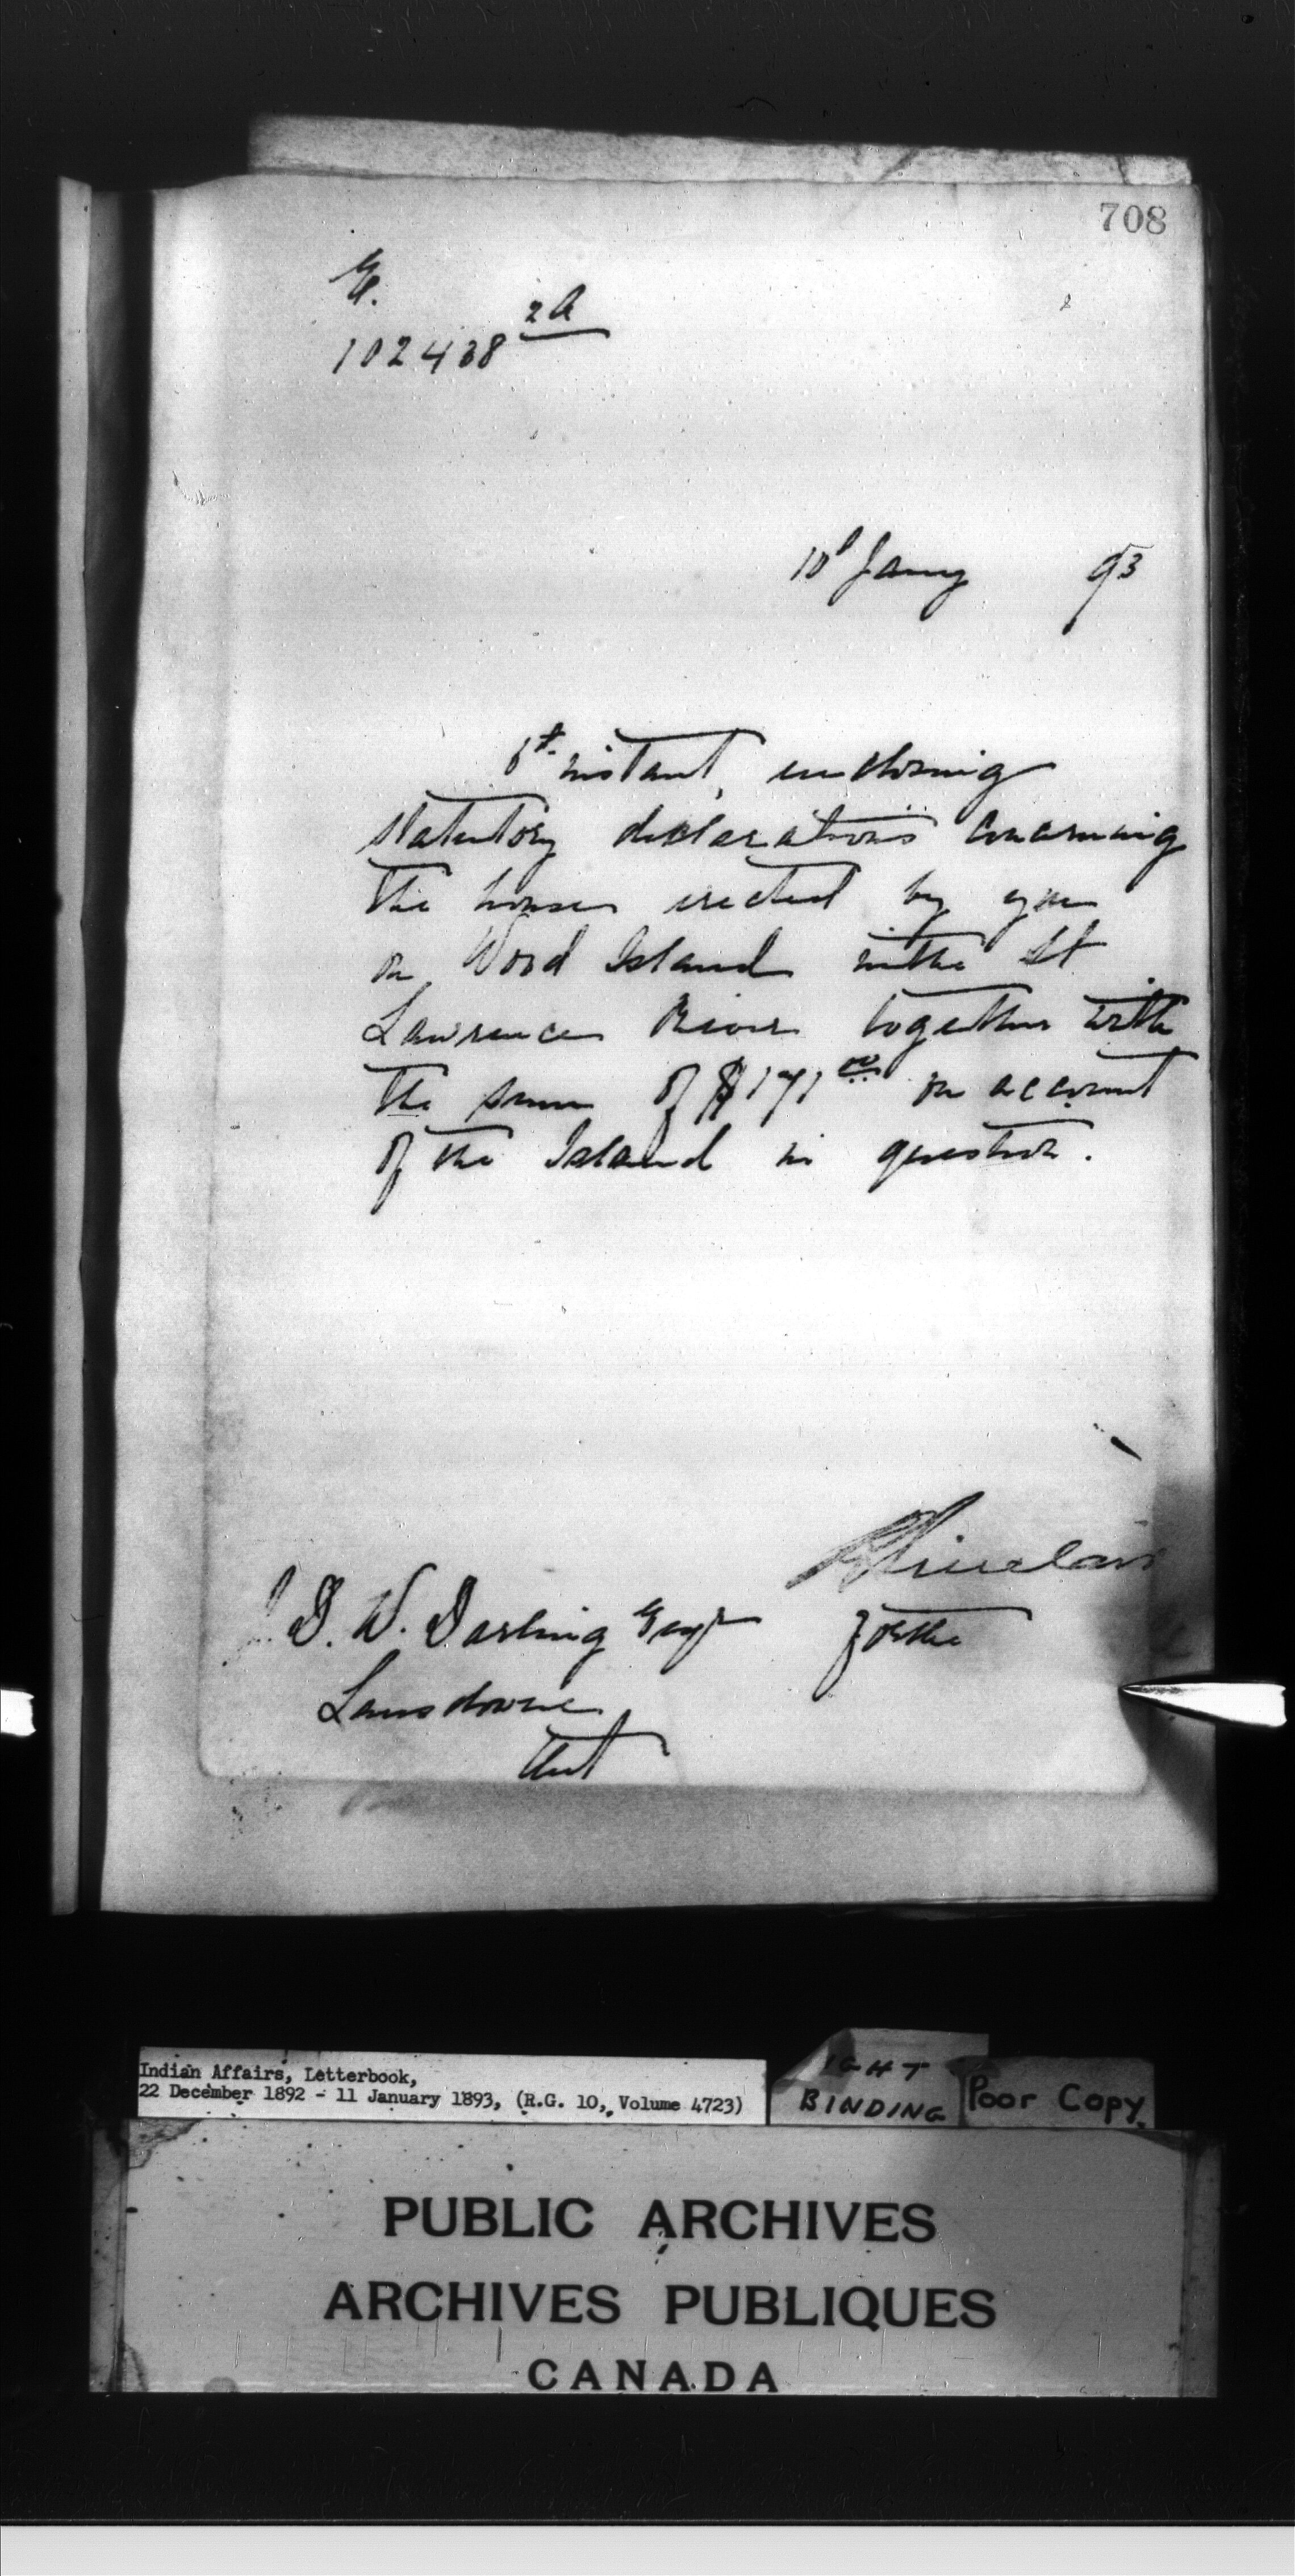 708
2A
102438
10th Jany 93
6th instant, enclosing
statutory declarations concerning
the house erected by you
on Wood Island in the St
Lawrence River together with
the sum of $171.00 on account
of the Island in question.
Sinclair
D. W. Darling Esqr for the
Lansdowne
Ont
Indian Affairs, Letterbook,
22 December 1892 - 11 January 1893, (R.G. 10, Volume 4723)
IGHT
BINDING
Poor Copy
PUBLIC ARCHIVES
ARCHIVES PUBLIQUES
CANADA